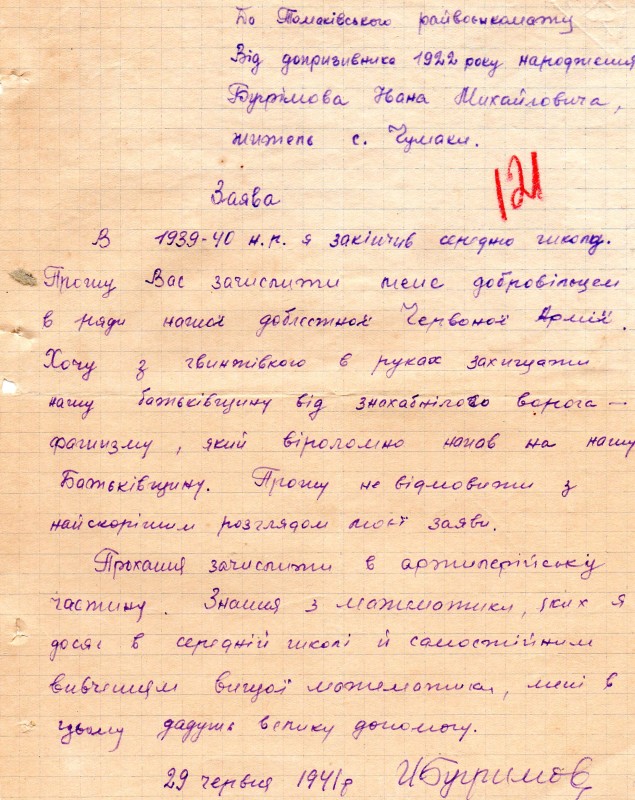 До Томаківського райвоєнкомату
Від допризивника 1922 року народження
Бугрімова Івана Михайловича,
житель с. Чумаки.
121
Заява
В 1939-40 н.р. я закінчив середню школу.
Прошу Вас зачислити мене добровільцем
в ряди нашої доблестної Червоної Армії.
Хочу з гвинтівкою в руках захищати
нашу батьківщину від знахабнілого ворога —
фашизму, який віроломно напав на нашу
Батьківщину. Прошу не відмовити з
найскорішим розглядом моєї заяви.
Прохання зачислити в артилерійську
частину. Знання з математики, яких я
досяг в середній школі й самостійним
вивченням вищої математики, мені в
цьому дадуть велику допомогу.
29 червня 1941 р ИБугримов